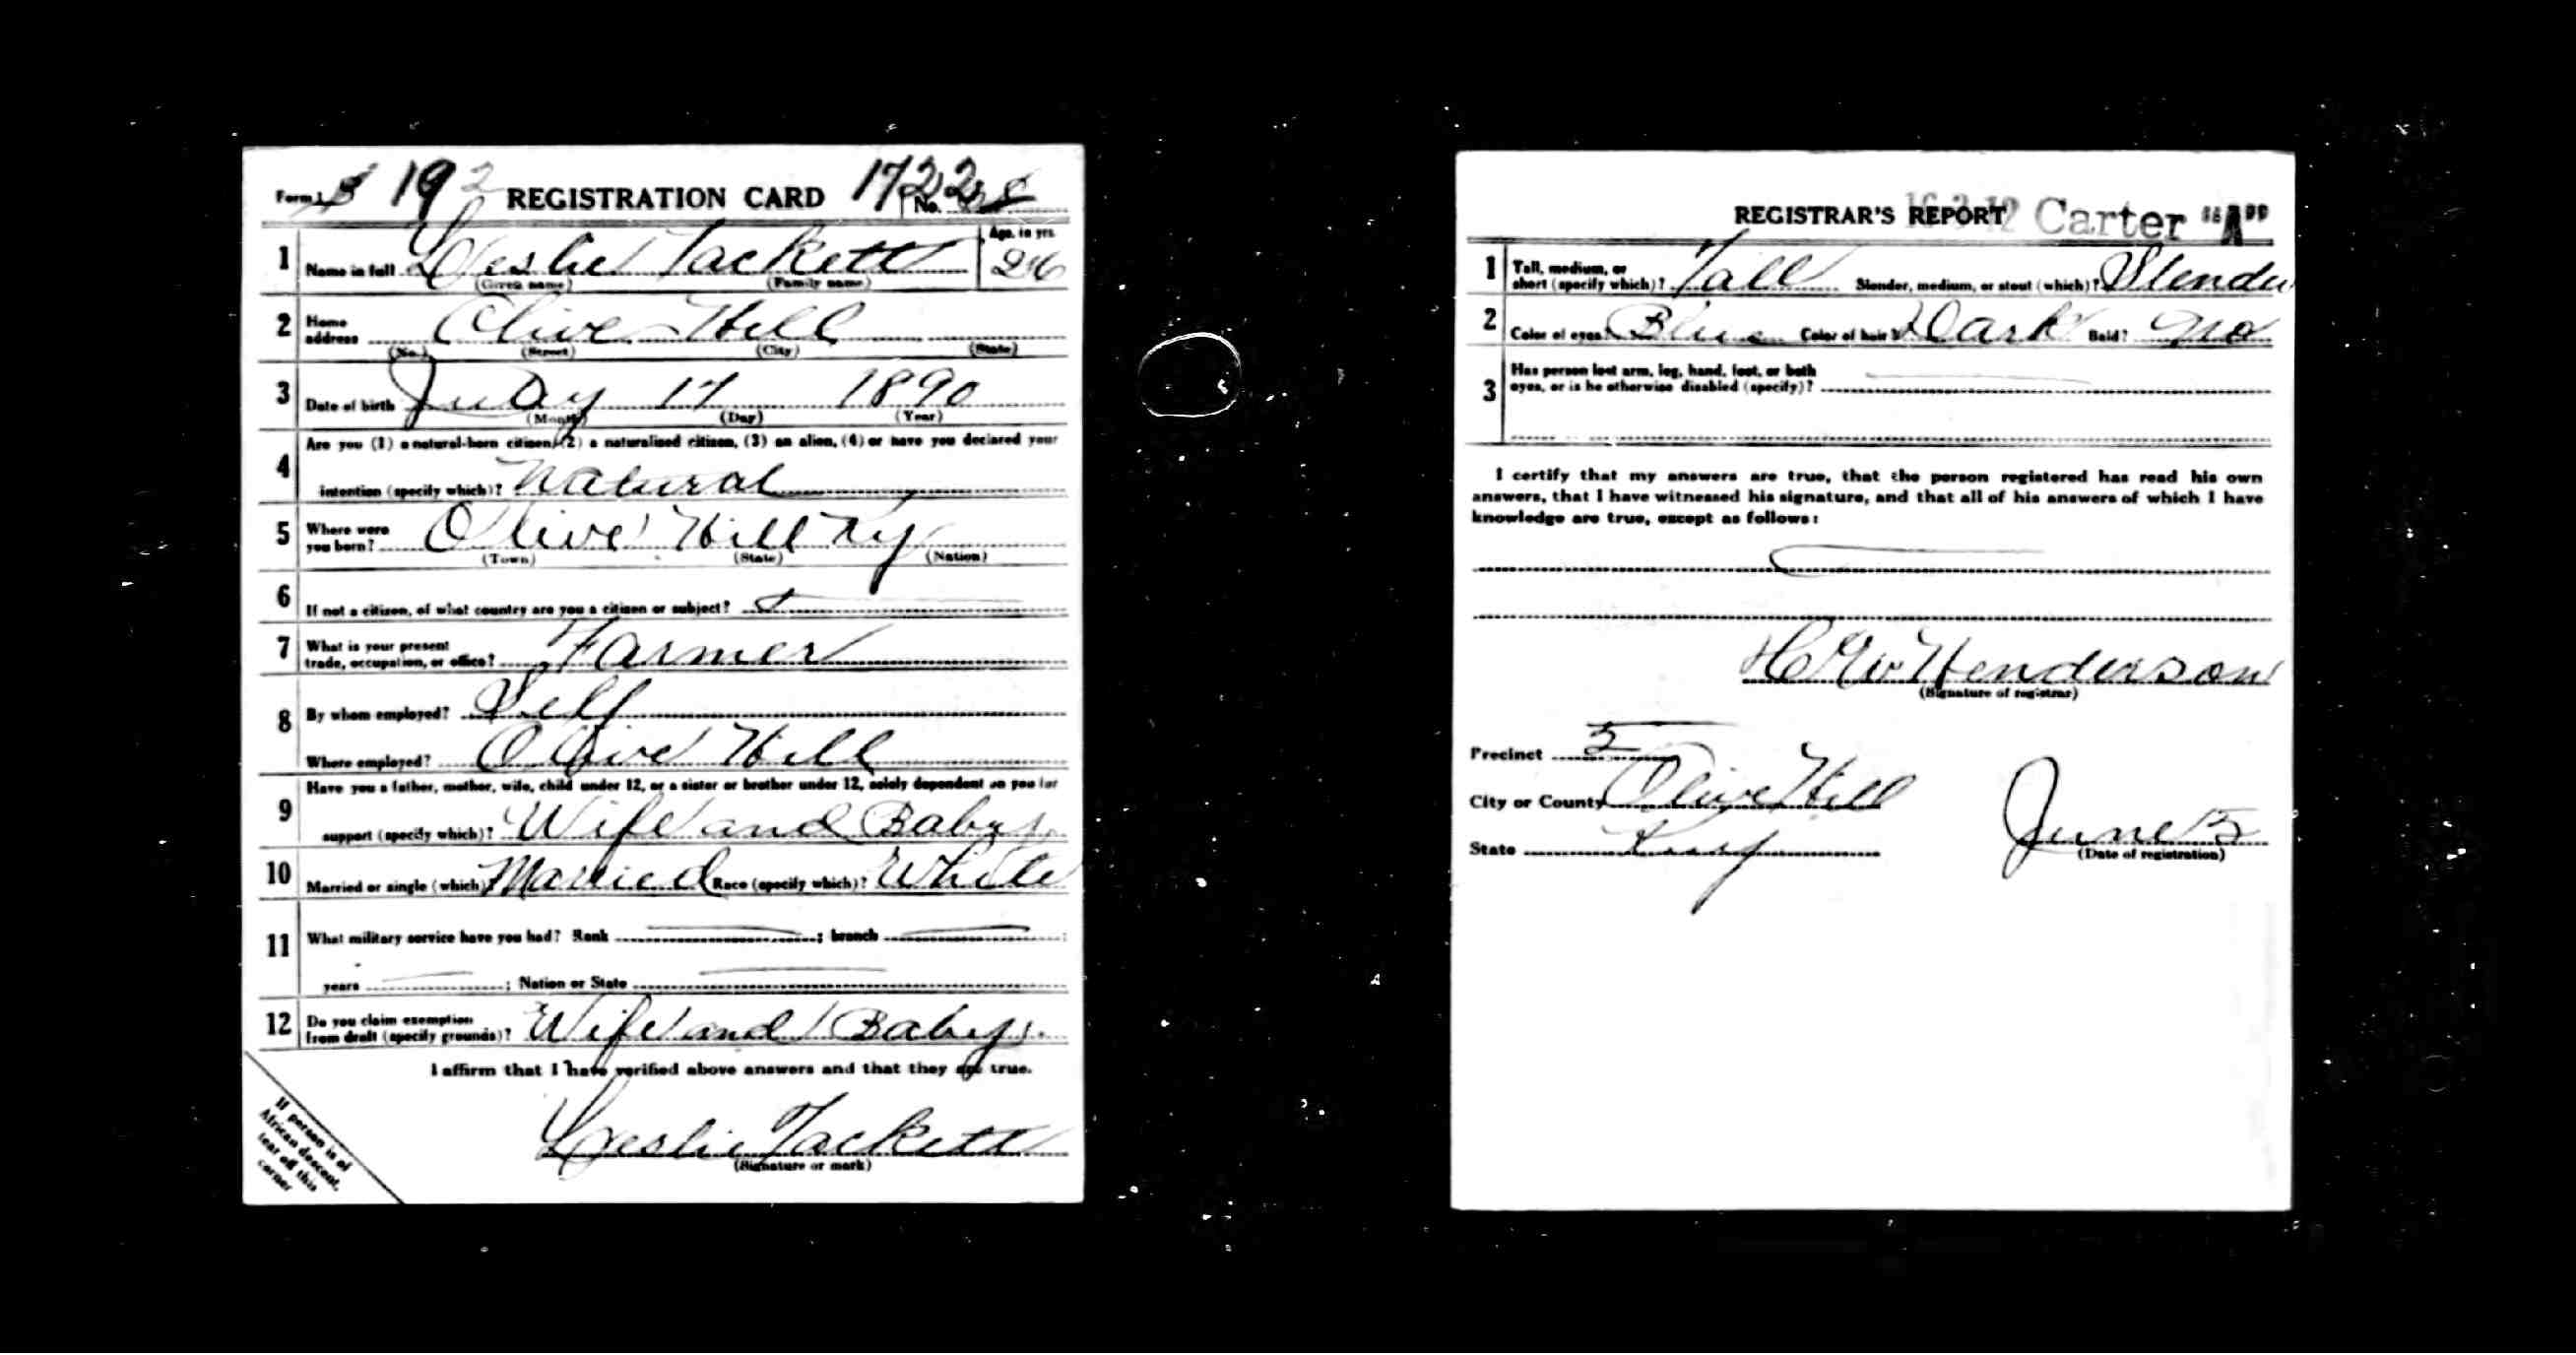 Form 1 192 REGISTRATION CARD 1722 No.
1 Name in full Leslie Tackett Age, in yrs. 26
(Given name) (Family name)
2 Home address Olive Hill
(No.) (Street) (City) (State)
3 Date of birth July 17 1890
(Month) (Day) (Year)
Are you (1) a natural-born citizen, (2) a naturalized citizen, (3) an alien, (4) or have you declared your
4 intention (specify which)? Natural
5 Where were you born? Olive Hill Ky
(Town) (State) (Nation)
6 If not a citizen, of what country are you a citizen or subject?
7 What is your present trade, occupation, or office? Farmer
8 By whom employed? Self
Where employed? Olive Hill
Have you a father, mother, wife, child under 12, or a sister or brother under 12, solely dependent on you for
9 support (specify which)? Wife and Babys
10 Married or single (which) Married Race (specify which)? White
11 What military service have you had? Rank ; branch ;
years ; Nation or State
12 Do you claim exemption from draft (specify grounds)? Wife and Babys.
I affirm that I have verified above answers and that they are true.
Leslie Tackett
(Signature or mark)
If person is of
African descent,
tear off this
corner
REGISTRAR'S REPORT Carter "A"
1 Tall, medium, or short (specify which)? Tall Slender, medium, or stout (which)? Slender
2 Color of eyes? Blue Color of hair? Dark Bald? No
3 Has person lost arm, leg, hand, foot, or both
eyes, or is he otherwise disabled (specify)?
I certify that my answers are true, that the person registered has read his own
answers, that I have witnessed his signature, and that all of his answers of which I have
knowledge are true, except as follows:
Henderson
(Signature of registrar)
Precinct 5
City or County Olive Hill
State Ky
June 5
(Date of registration)